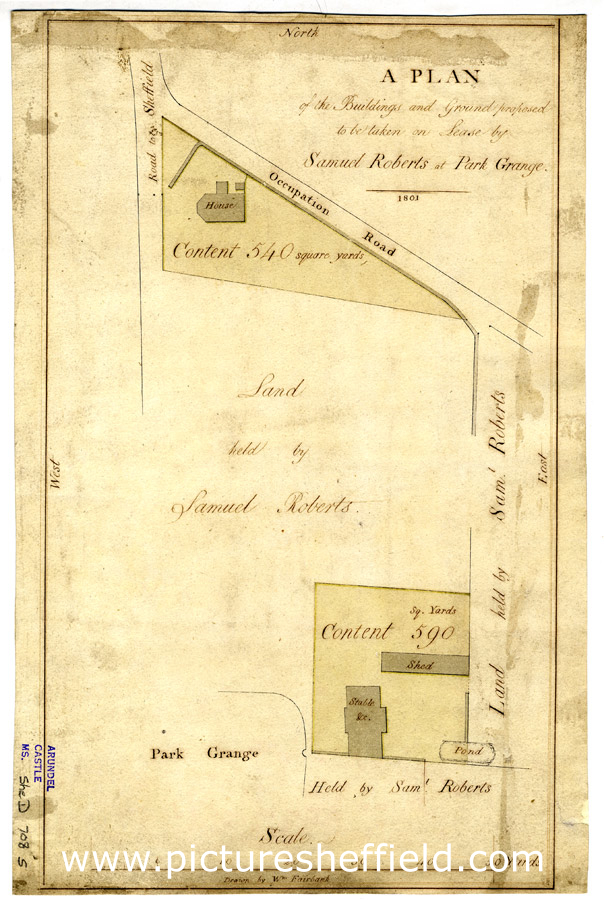 North
A PLAN
of the Buildings and Ground proposed
to be taken on Lease by
Samuel Roberts at Park Grange.
1801
Road to Sheffield
Occupation Road
House
Content 540 square yards,
Land
held by
Samuel Roberts.
West
East
Land held by Sam.l Roberts
Sq. Yards
Content 590
Shed
Stable
&c.
Pond
Park Grange
Held by Sam.l Roberts
ARUNDEL
CASTLE
MS. SheD 708 S
Scale.
50 Yards
www.picturesheffield.com
Drawn by Wm. Fairbank